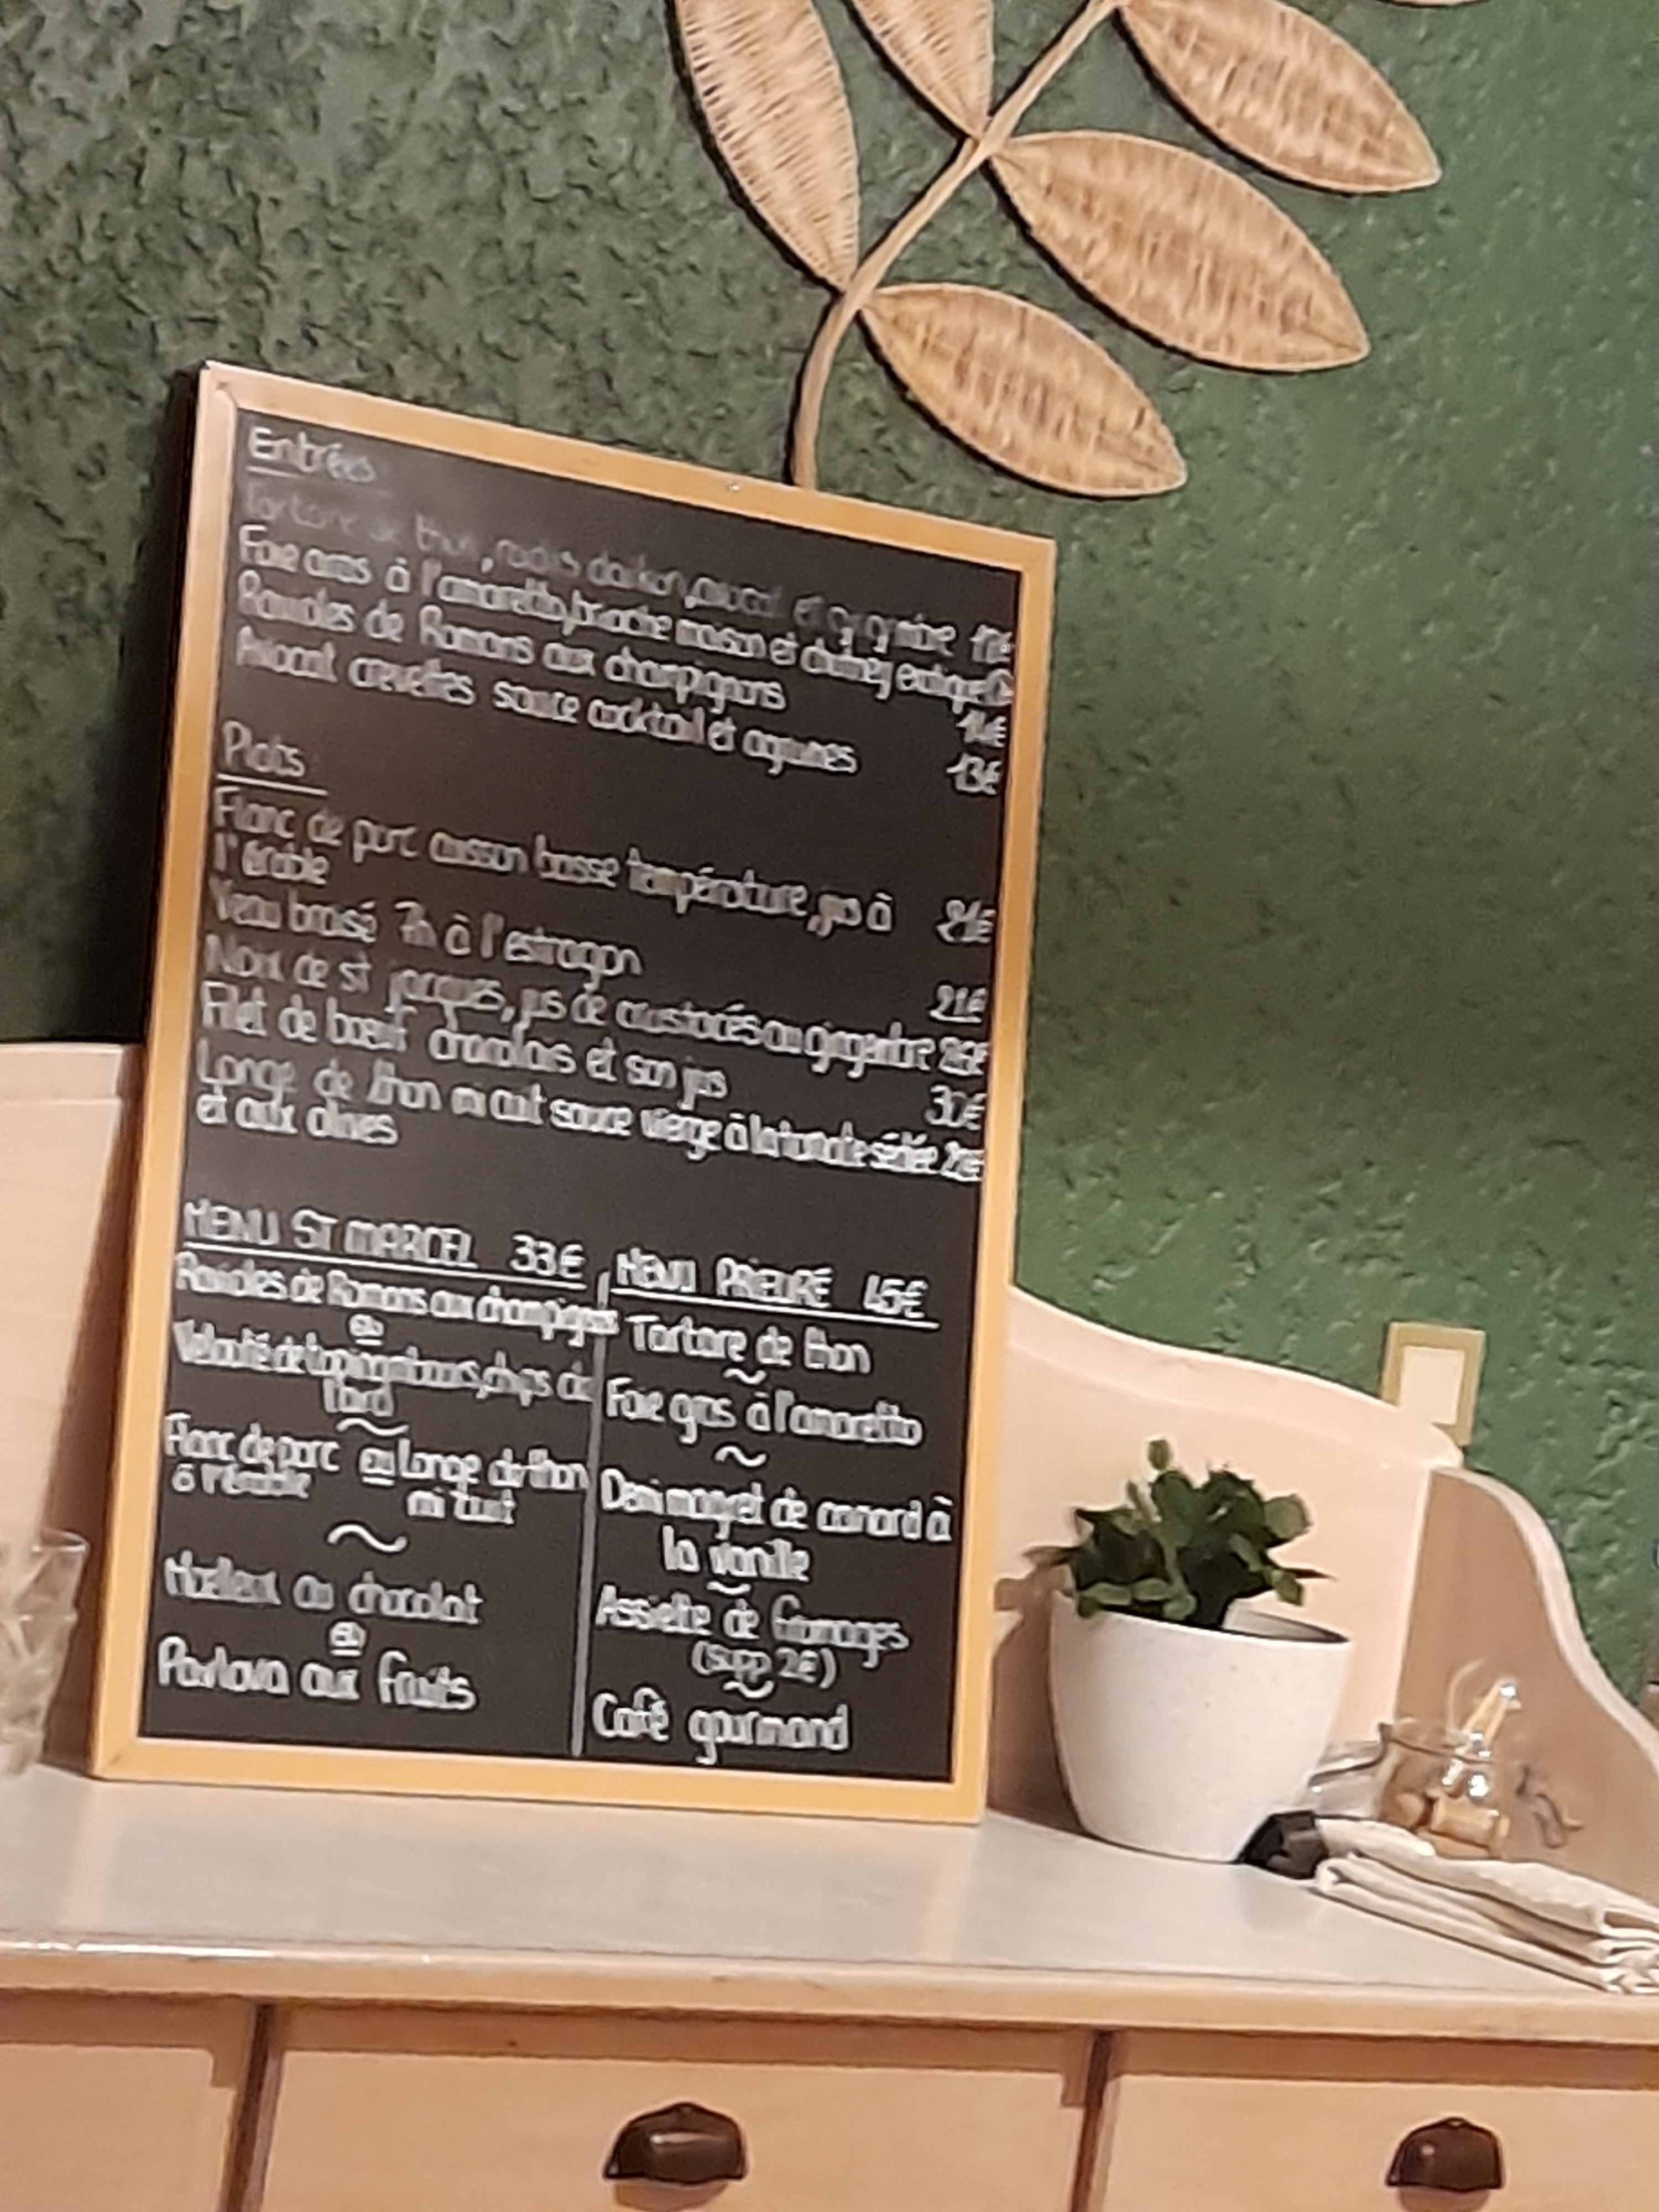 Entrées
Tartare de thon, radis daikon, avocat et gingembre
Foie gras à l'amaretto, brioche maison et chutney exotique
Ravioles de Romans aux champignons 14€
Avocat crevettes sauce cocktail et agrumes 13€
Plats
Flanc de porc cuisson basse température, jus à 21€
l'érable
Veau braisé 7h à l'estragon 21€
Noix de st jacques, jus de crustacés au gingembre 26€
Filet de bœuf charolais et son jus 30€
Longe de thon mi cuit sauce vierge à la tomate séchée
et aux olives
MENU ST MARCEL 33€
Ravioles de Romans aux champignons
ou
Velouté de topinambours, chips de
lard
~
Flanc de porc ou Longe de thon
à l'érable mi cuit
~
Moelleux au chocolat
ou
Pavlova aux fruits
MENU PRIEURÉ 45€
Tartare de thon
~
Foie gras à l'amaretto
~
Demi magret de canard à
la vanille
~
Assiette de fromages
(supp 2€)
~
Café gourmand